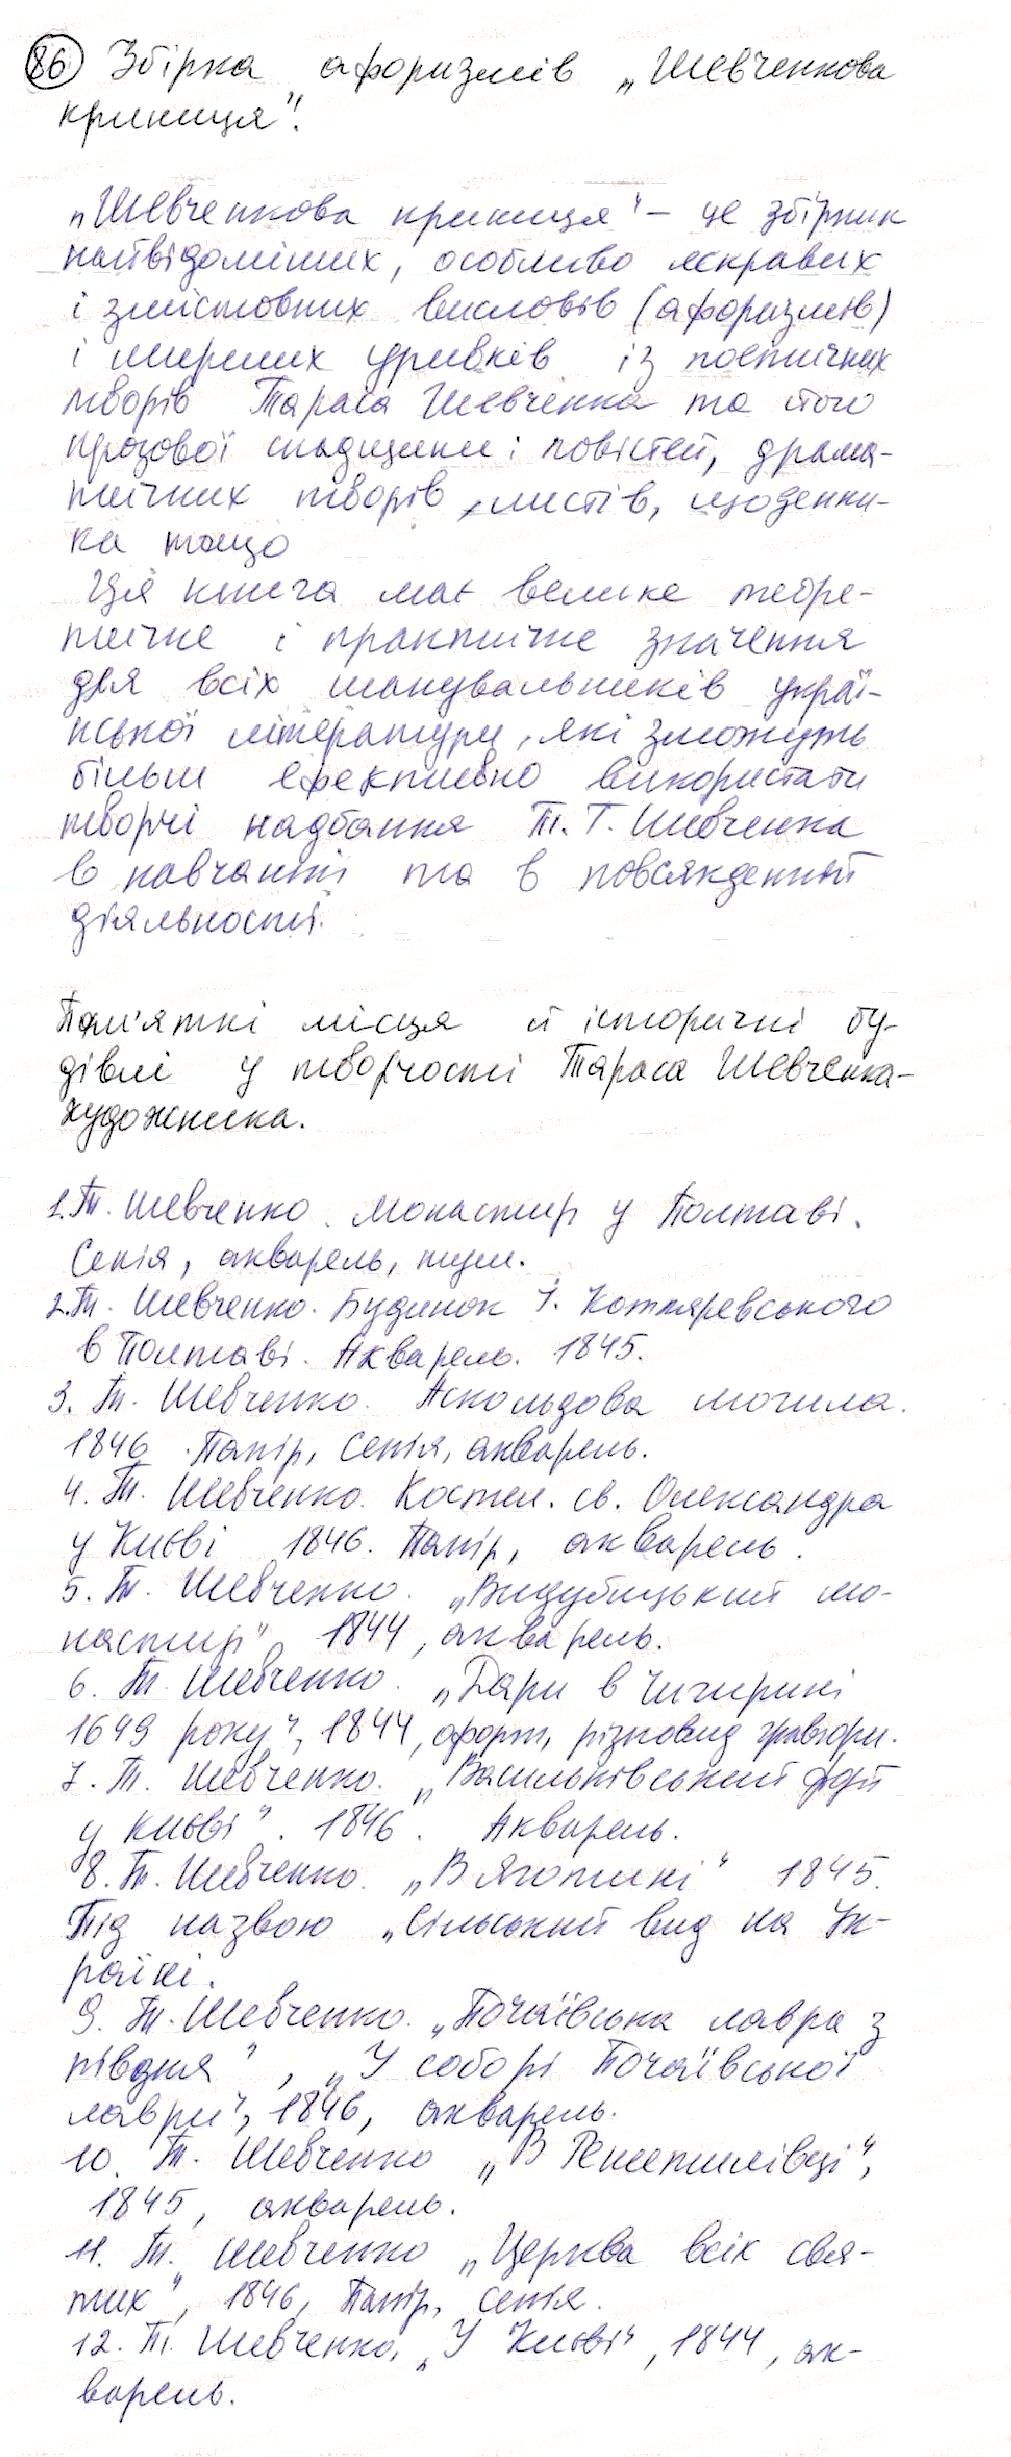 86 Збірка афоризмів „Шевченкова
криниця".
„Шевченкова криниця" – це збірник
найвідоміших, особливо яскравих
і змістовних висловів (афоризмів)
і ширших уривків із поетичних
творів Тараса Шевченка та його
прозової спадщини: повістей, драма-
тичних творів, листів, щоденни-
ка тощо
Ця книга має велике теоре-
тичне і практичне значення
для всіх шанувальників украї-
нської літератури, які зможуть
більш ефективно використати
творчі надбання Т. Г. Шевченка
в навчанні та в повсякденній
діяльності.
Пам'ятні місця й історичні бу-
дівлі у творчості Тараса Шевченка-
художника.
1. Т. Шевченко. Монастир у Полтаві.
Сепія, акварель, туш.
2. Т. Шевченко. Будинок І. Котляревського
в Полтаві. Акварель. 1845.
3. Т. Шевченко. Аскольдова могила.
1846. Папір, сепія, акварель.
4. Т. Шевченко. Костел. св. Олександра
у Києві 1846. Папір, акварель.
5. Т. Шевченко. „Видубицький мо-
настир", 1844, акварель.
6. Т. Шевченко. „Дари в Чигирині
1649 року", 1844, офорт, різновид гравюри.
7. Т. Шевченко. „Васильківський форт
у Києві". 1846. Акварель.
8. Т. Шевченко. „В Яготині" 1845.
Під назвою „Сільський вид на Ук-
раїні.
9. Т. Шевченко. „Почаївська лавра з
півдня", „У соборі Почаївської
лаври", 1846, акварель.
10. Т. Шевченко „В Решетилівці",
1845, акварель.
11. Т. Шевченко „Церква всіх свя-
тих", 1846, Папір, сепія.
12. Т. Шевченко. „У Києві", 1844, ак-
варель.